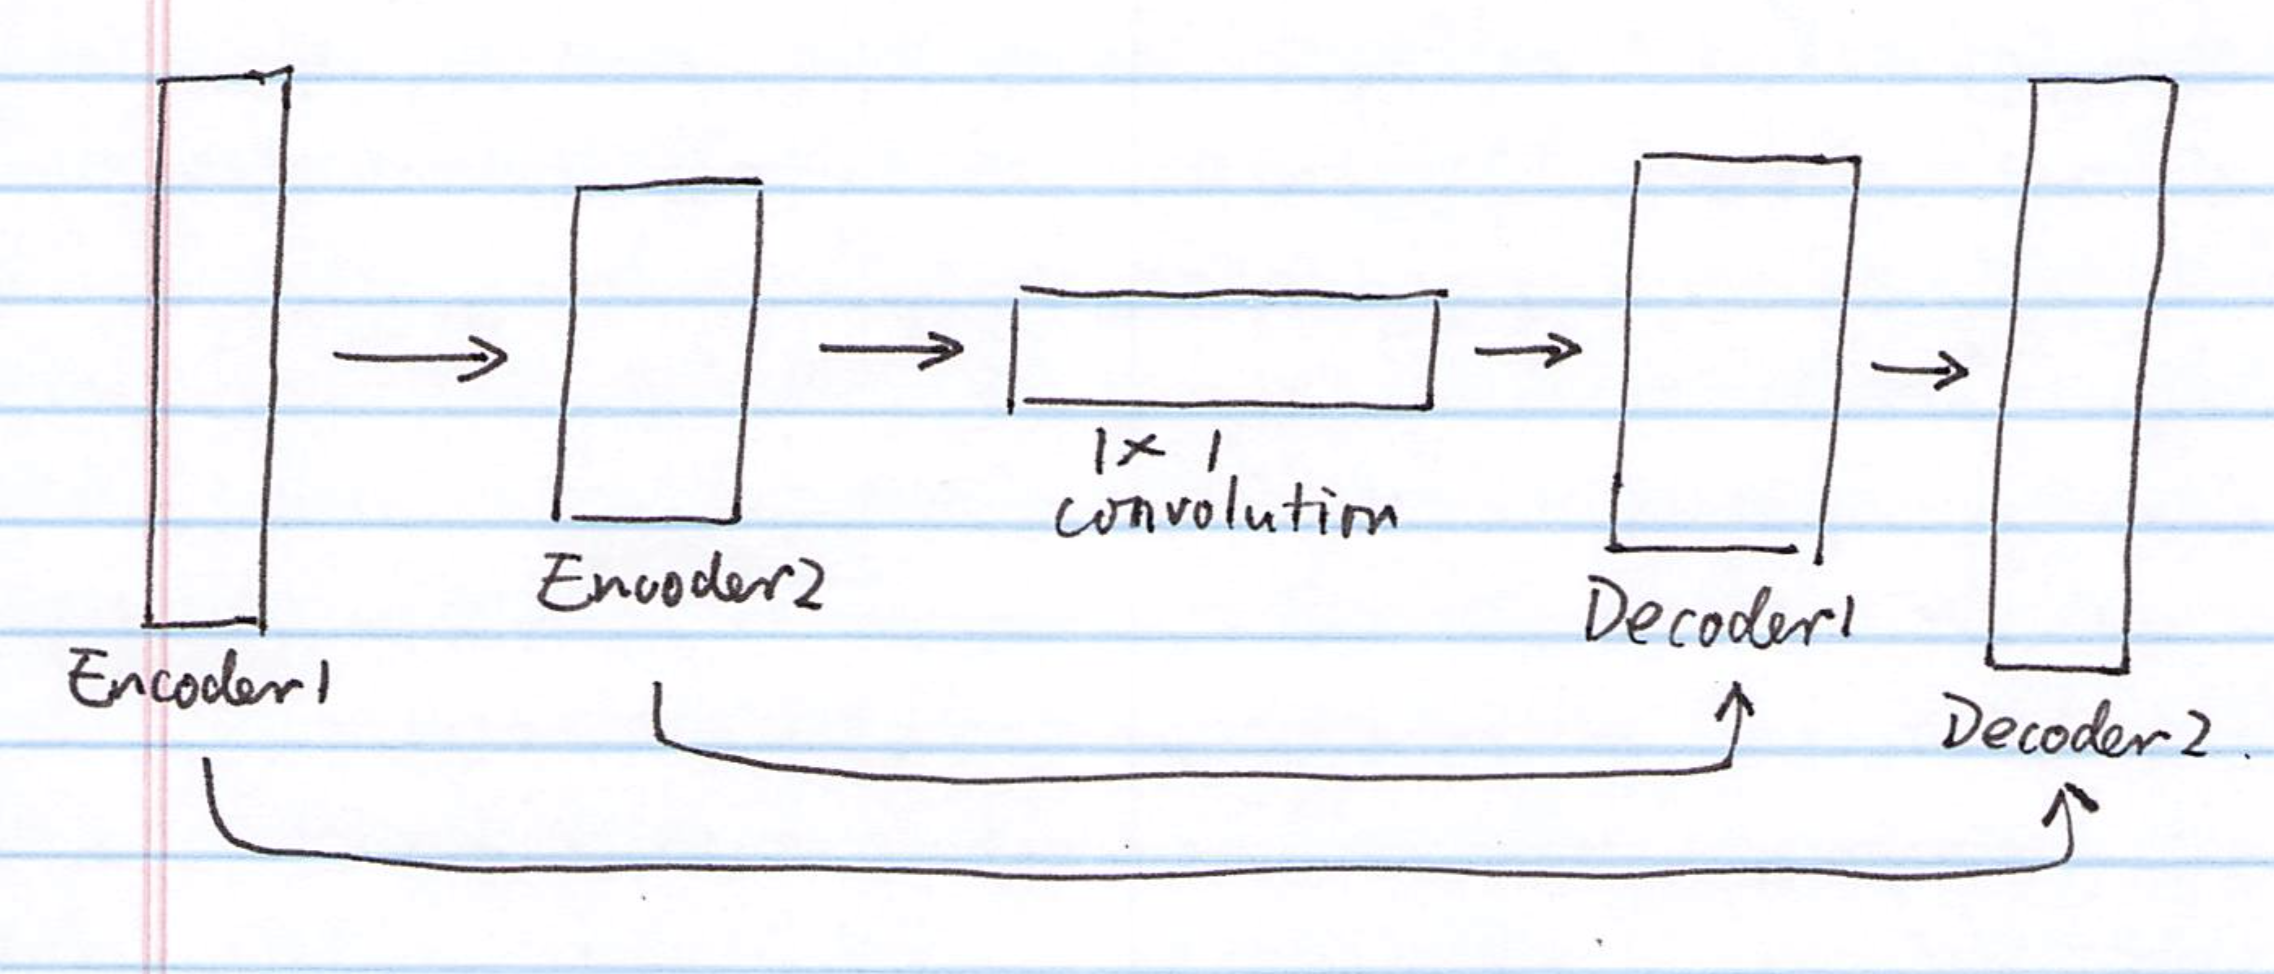 Encoder1
Encoder2
1×1
convolution
Decoder1
Decoder2.